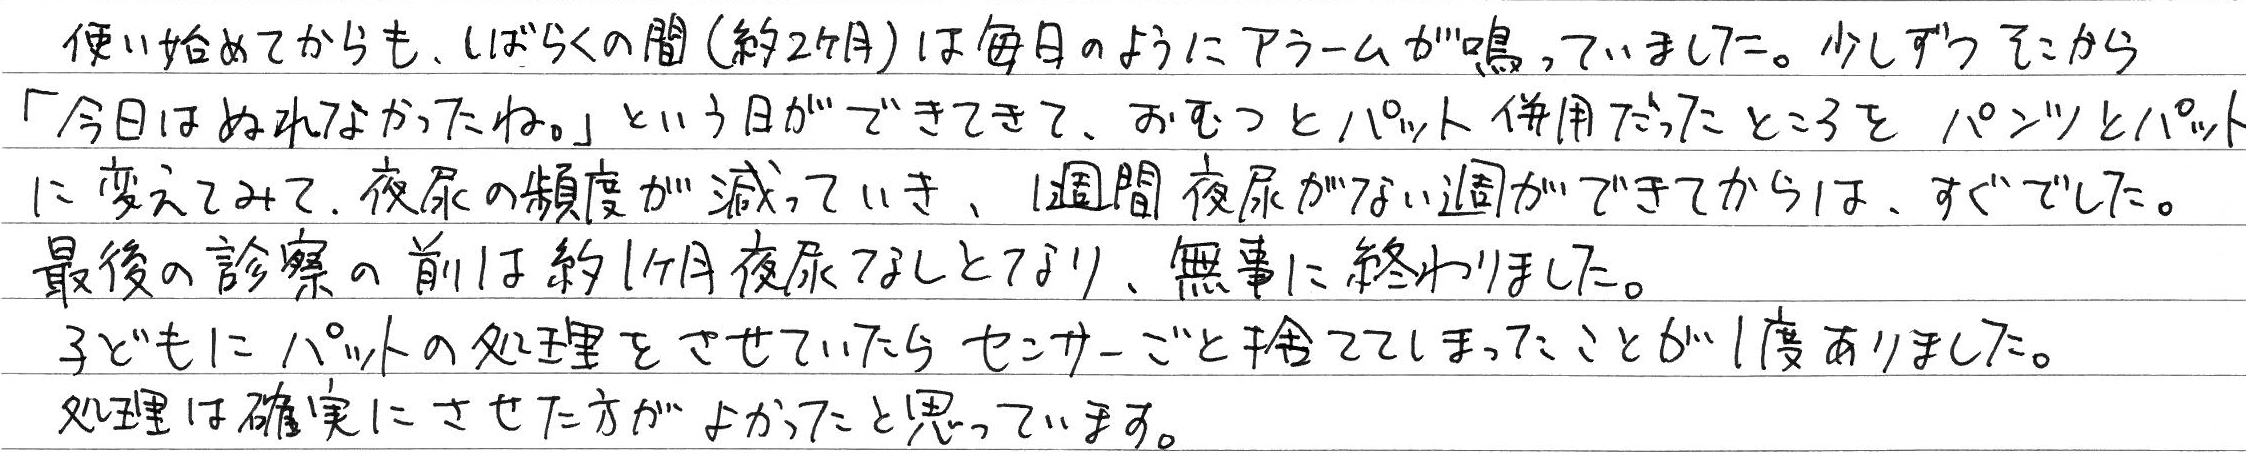 使い始めてからも、しばらくの間(約2ヶ月)は毎日のようにアラームが鳴っていました。少しずつそこから
「今日はぬれなかったね。」という日ができてきて、おむつとパット併用だったところをパンツとパット
に変えてみて、夜尿の頻度が減っていき、1週間夜尿がない週ができてからは、すぐでした。
最後の診察の前は約1ヶ月夜尿なしとなり、無事に終わりました。
子どもにパットの処理をさせていたらセンサーごと捨ててしまったことが1度ありました。
処理は確実にさせた方がよかったと思っています。